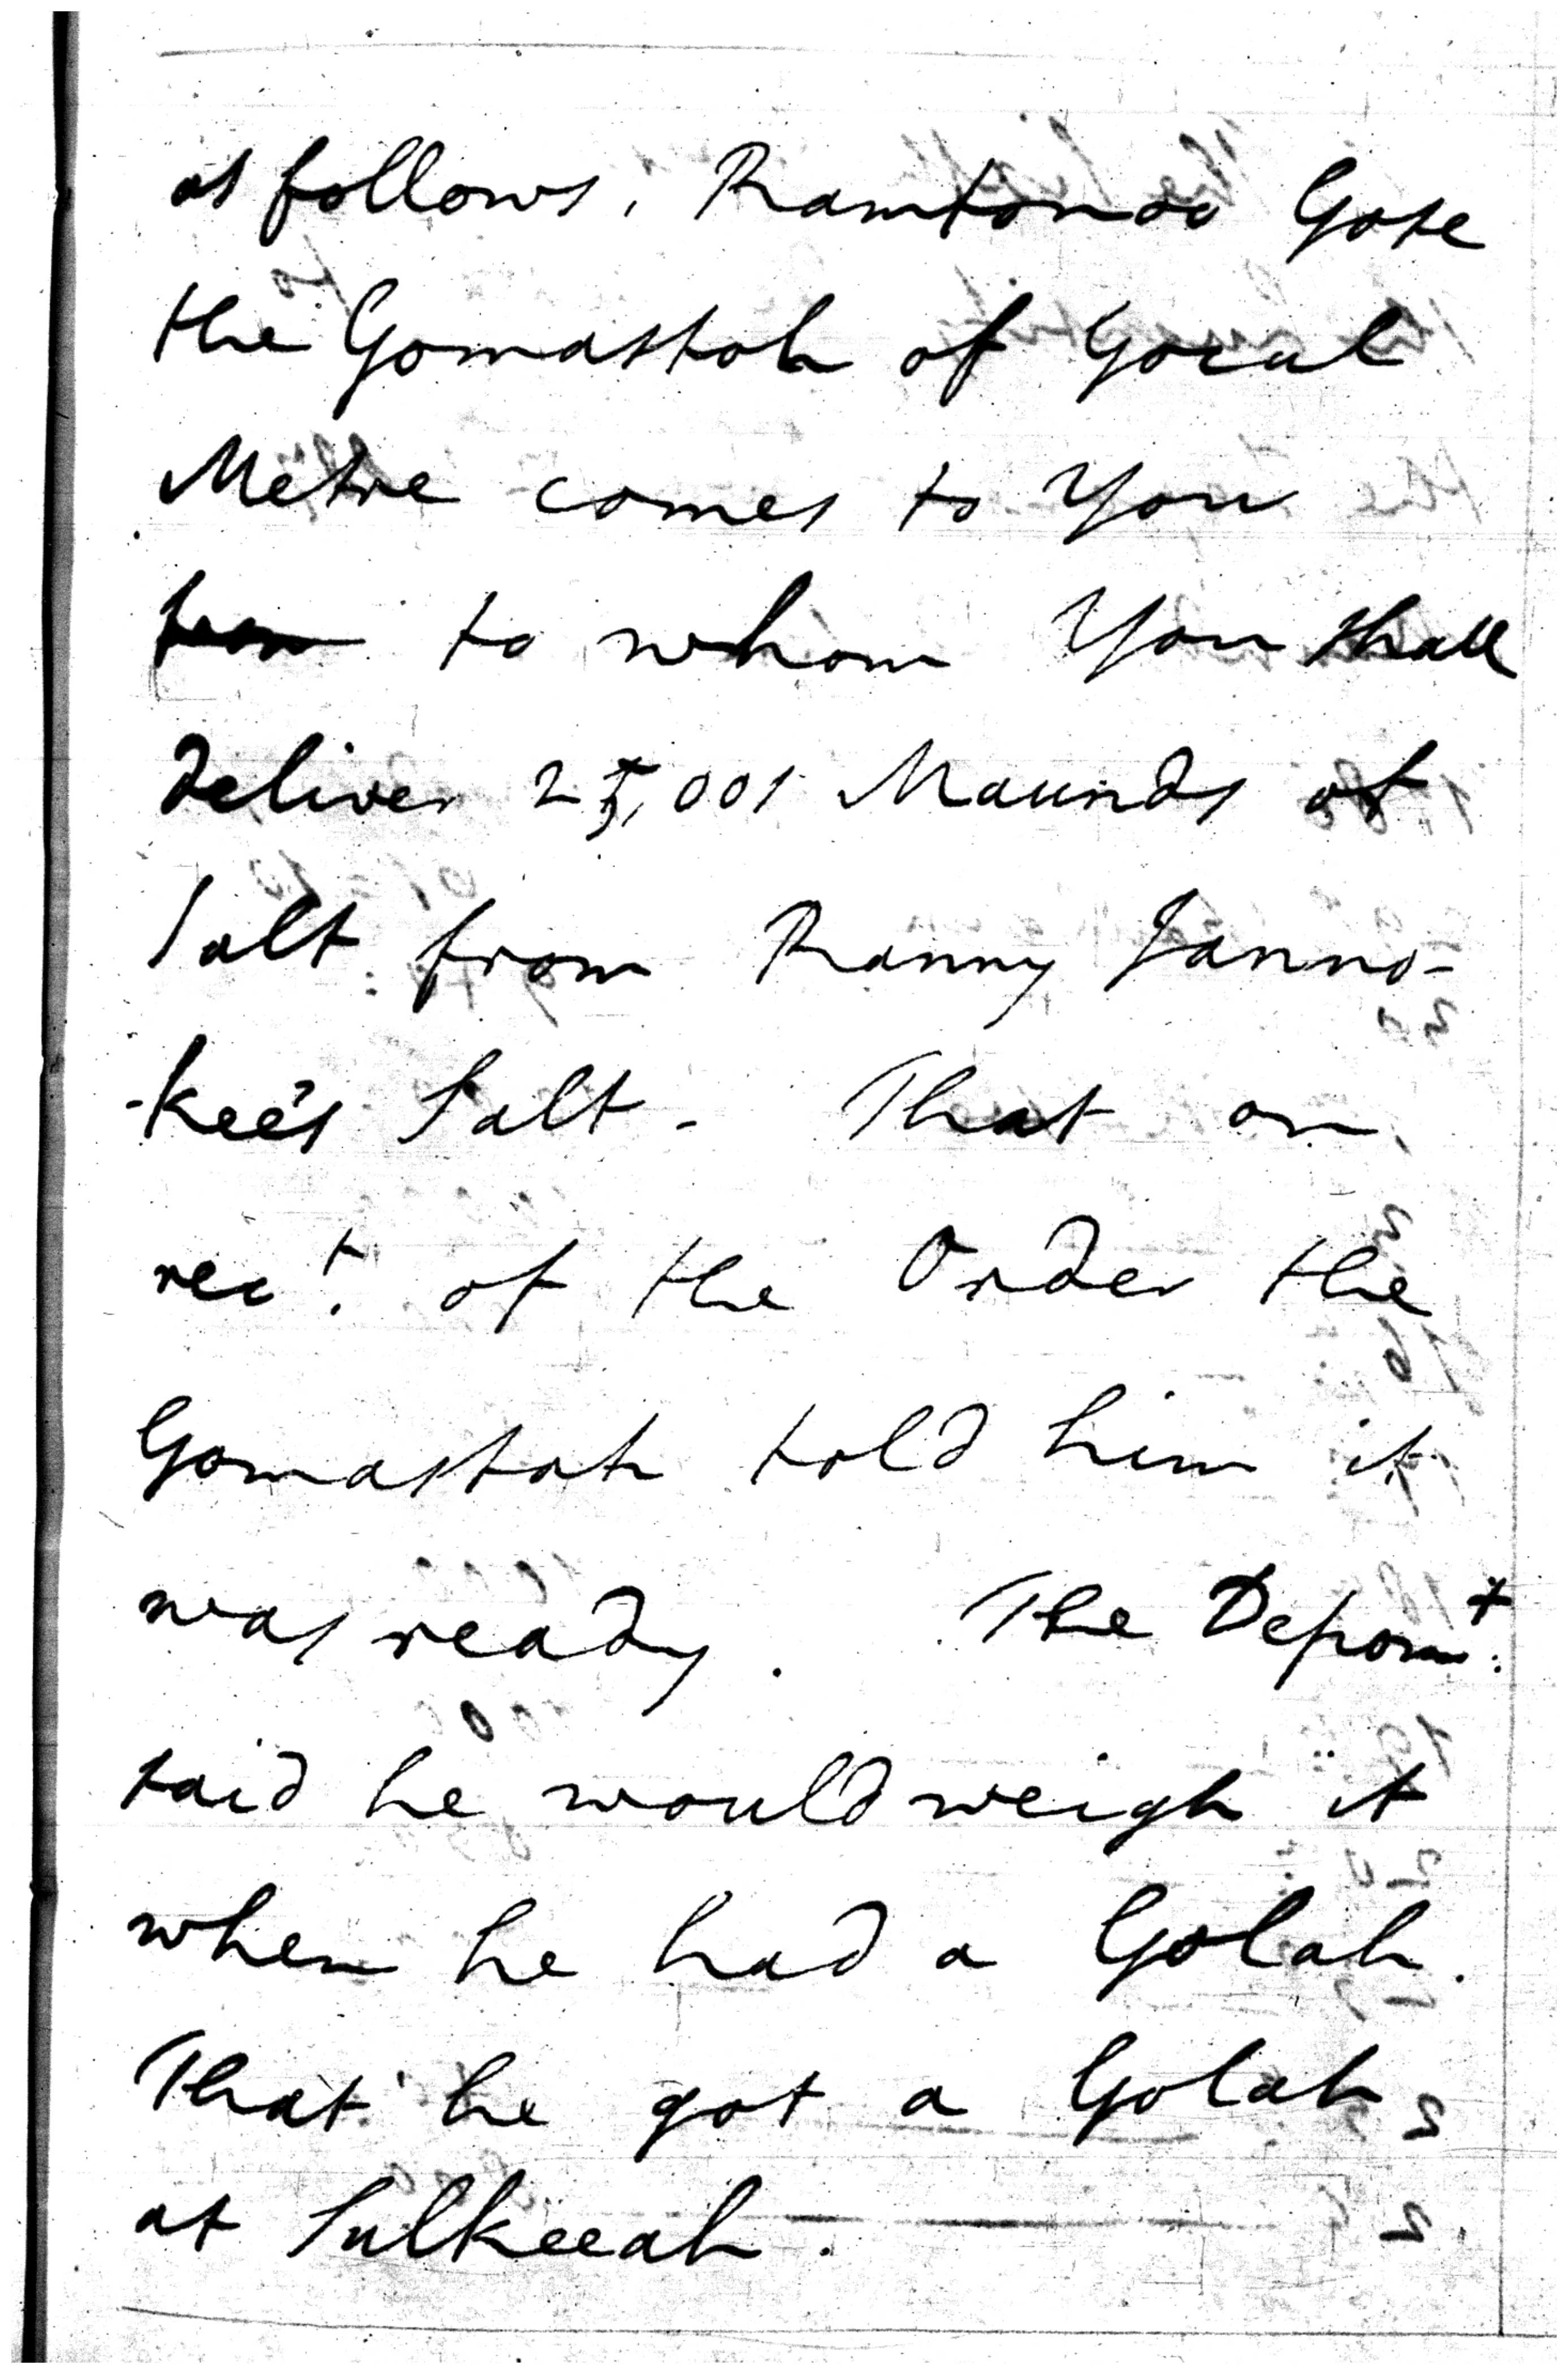 as follows, Ramtonoo Gose
the Gomastah of Gocul
Metre comes to You
to whom You shall
deliver 25,001 Maunds of
Salt from Ranny Janno-
-kee's Salt - That on
rect. of the Order the
Gomastah told him it
was ready. The Depont.
said he would weigh it
when he had a Golah.
That he got a Golah
at Sulkeeah.